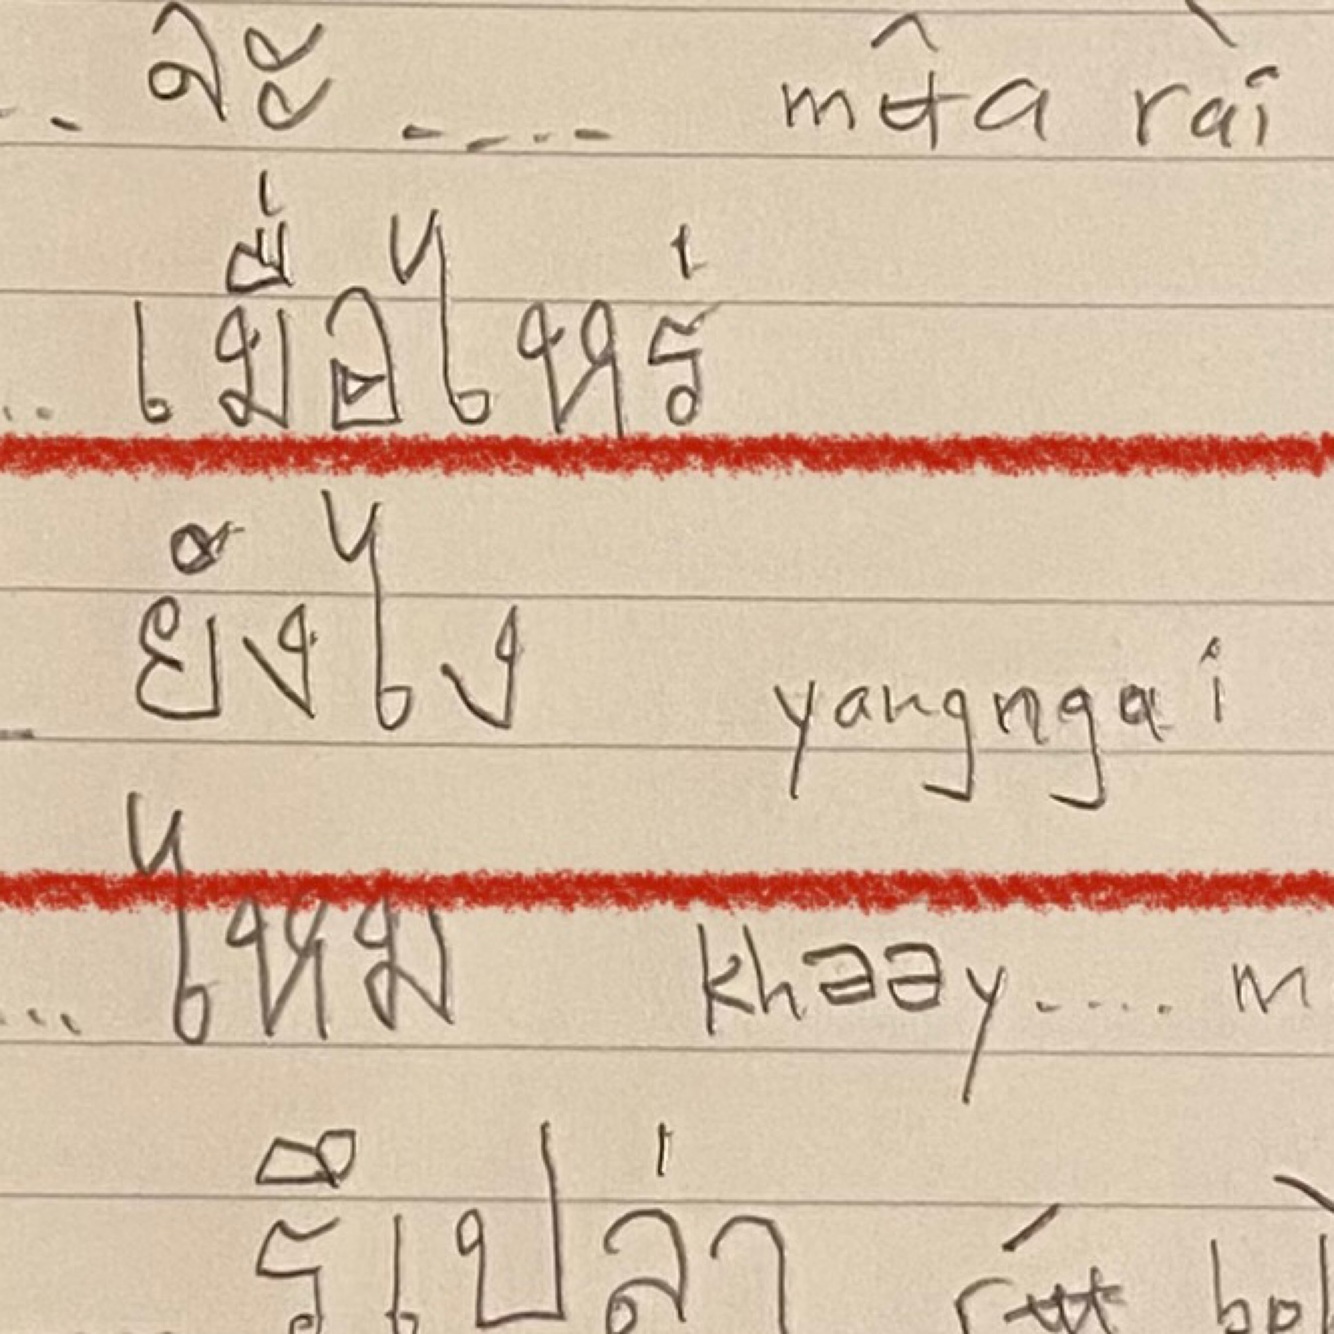 .. จะ .... mʉ̂a rài
.. เมื่อไหร่
ยังไง yangngai
... ไหม khəəy.... m
รึเปล่า rʉ́